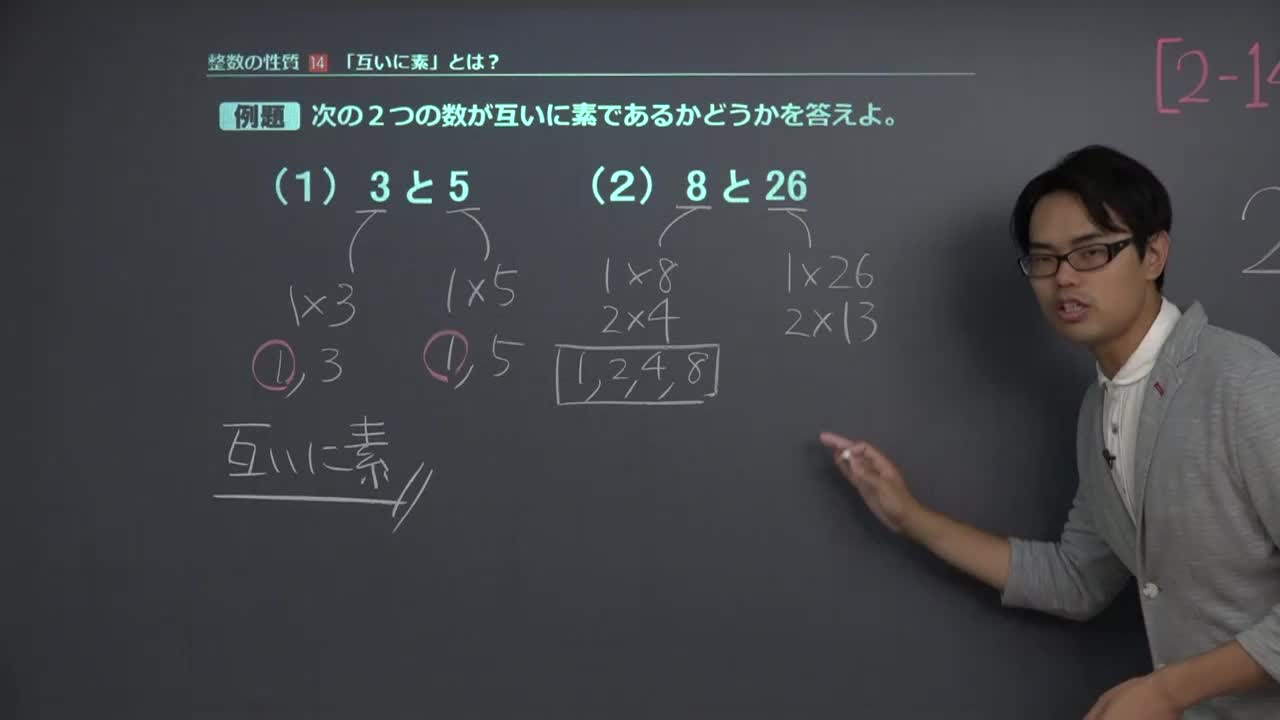 整数の性質 14 「互いに素」とは？
[2-14
例題 次の２つの数が互いに素であるかどうかを答えよ。
（1） 3 と 5
（2） 8 と 26
1×3
1×5
1, 3
1, 5
互いに素
1×8
2×4
1, 2, 4, 8
1×26
2×13
2